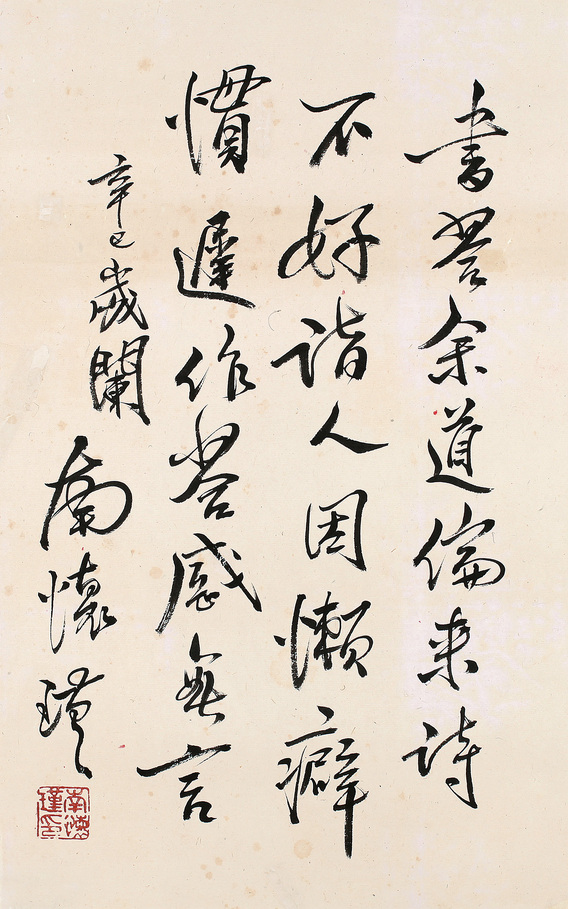 書余道偏来詩
不好詣人因懶癖
慣遲作答感無言
辛巳歲闌
南懷瑾
南懷瑾印